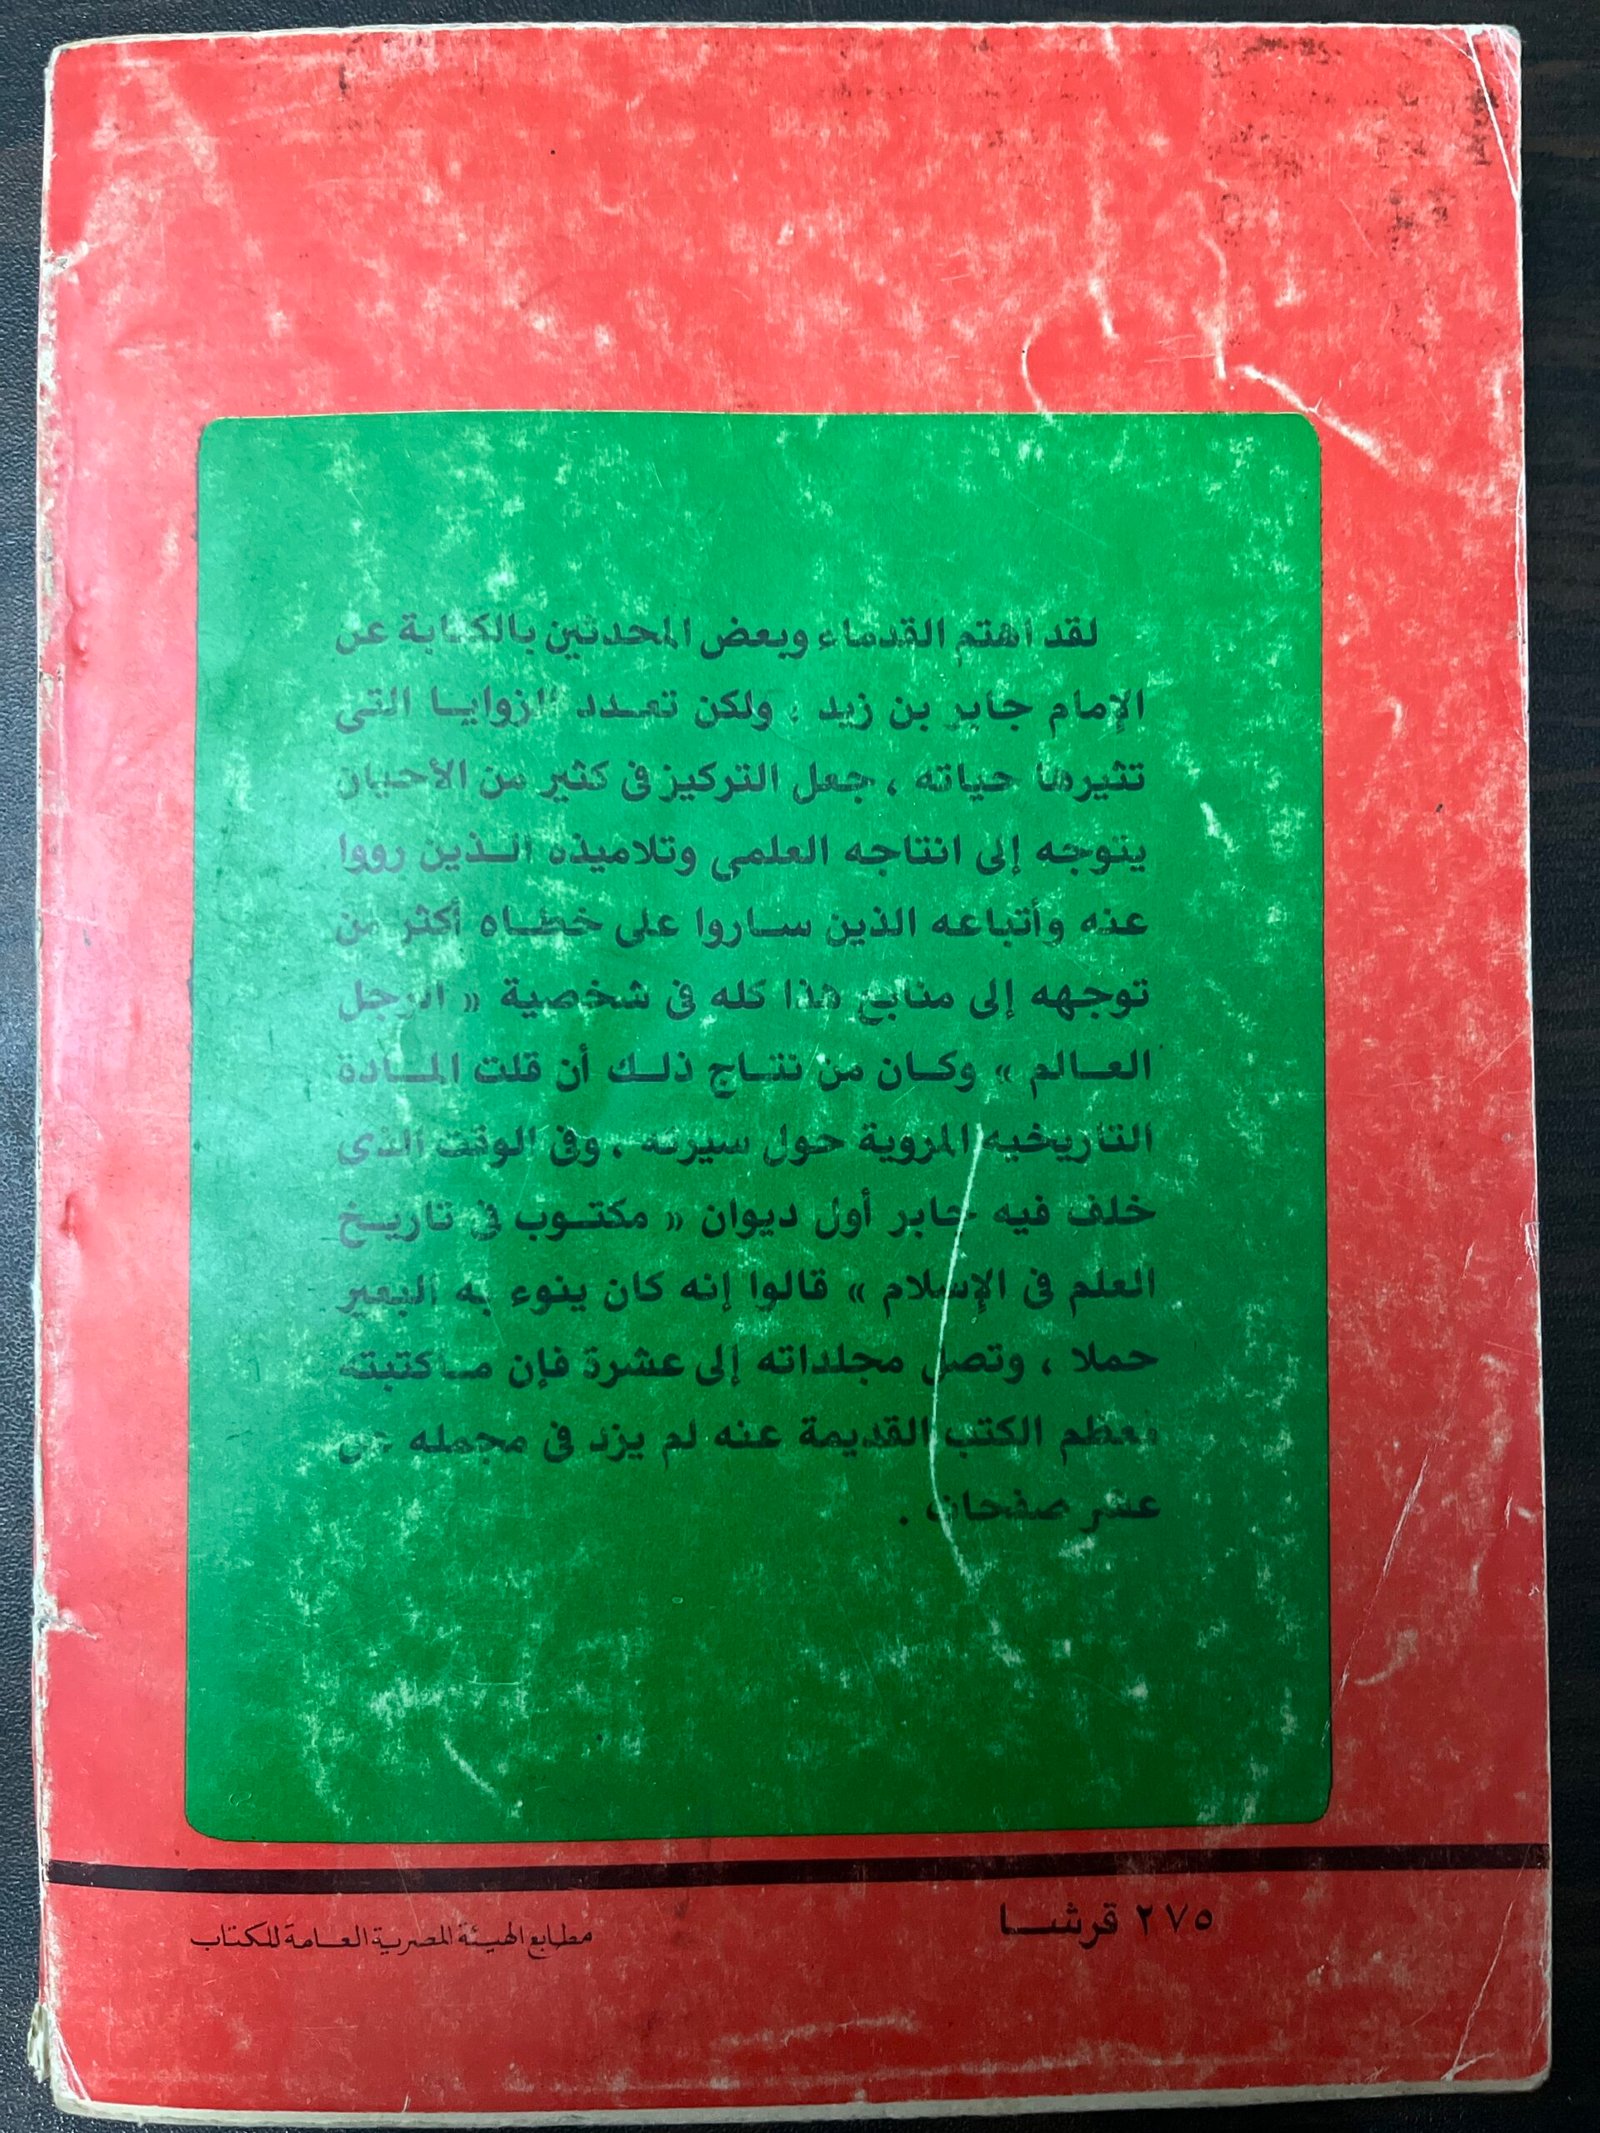 لقد اهتم القدماء وبعض المحدثين بالكتابة عن
الإمام جابر بن زيد ، ولكن تعدد الزوايا التى
تثيرها حياته ، جعل التركيز فى كثير من الأحيان
يتوجه إلى انتاجه العلمى وتلاميذه الذين رووا
عنه وأتباعه الذين ساروا على خطاه أكثر من
توجهه إلى منابع هذا كله فى شخصية « الرجل
العالم » وكان من نتاج ذلك أن قلت المادة
التاريخيه المروية حول سيرته ، وفى الوقت الذى
خلف فيه جابر أول ديوان « مكتوب فى تاريخ
العلم فى الإسلام » قالوا إنه كان ينوء به البعير
حملا ، وتصل مجلداته إلى عشرة فإن ماكتبته
معظم الكتب القديمة عنه لم يزد فى مجمله عن
عشر صفحات .
٢٧٥ قرشا
مطابع الهيئة المصرية العامة للكتاب